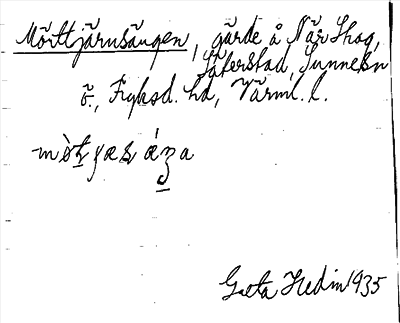 Mörttjärnsängen, gärde å När Skog,
Säterstad, Sunnebn
ö., Fryksd. hd, Värml. l.
Greta Hedin 1935